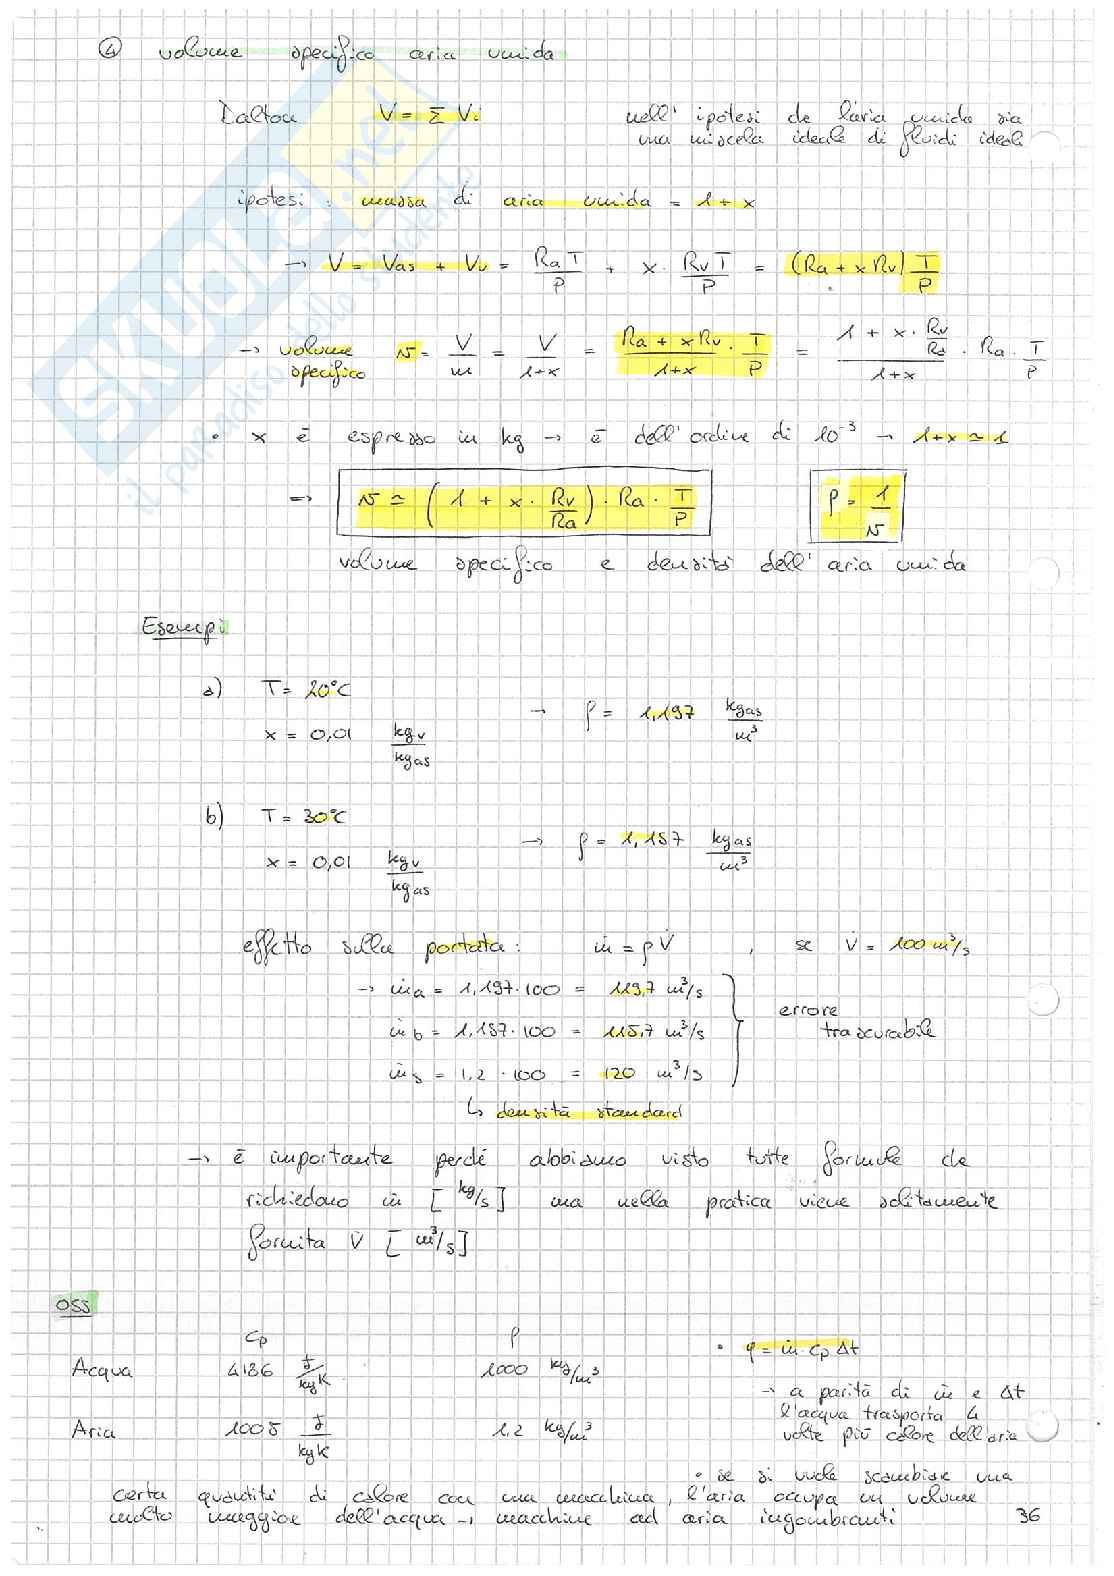 ④ volume specifico aria umida
Dalton V = Σ Vi nell'ipotesi che l'aria umida sia
una miscela ideale di fluidi ideali
ipotesi : massa di aria umida = 1 + x
→ V = Vas + Vv = RaT/P + x · RvT/P = (Ra + x Rv) T/P
→ volume specifico v = V/m = V/1+x = Ra + x Rv/1+x · T/P = 1 + x · Rv/Ra/1+x · Ra · T/P
• x è espresso in kg → è dell'ordine di 10⁻³ → 1+x ≃ 1
⇒ v ≃ (1 + x · Rv/Ra) · Ra · T/P ρ = 1/v
volume specifico e densità dell'aria umida
Esempi
a) T = 20°C → ρ = 1,197 kgas/m³
x = 0,01 kgv/kgas
b) T = 30°C → ρ = 1,157 kgas/m³
x = 0,01 kgv/kgas
effetto sulla portata : ṁ = ρ V̇ , se V̇ = 100 m³/s
→ ṁa = 1,197·100 = 119,7 m³/s
ṁb = 1,157·100 = 115,7 m³/s
errore trascurabile
ṁs = 1,2 · 100 = 120 m³/s
↳ densità standard
→ è importante perché abbiamo visto tutte formule che
richiedono ṁ [kg/s] ma nella pratica viene solitamente
fornita V̇ [m³/s]
OSS
cp ρ
Acqua 4186 J/kgK 1000 kg/m³
Aria 1005 J/kgK 1,2 kg/m³
• q = ṁ · cp Δt
→ a parità di ṁ e Δt
l'acqua trasporta 4
volte più calore dell'aria
• se si vuole scambiare una
certa quantità di calore con una macchina, l'aria occupa un volume
molto maggiore dell'acqua → macchine ad aria ingombranti
36
SKUOLA.net
il paradiso dello studente